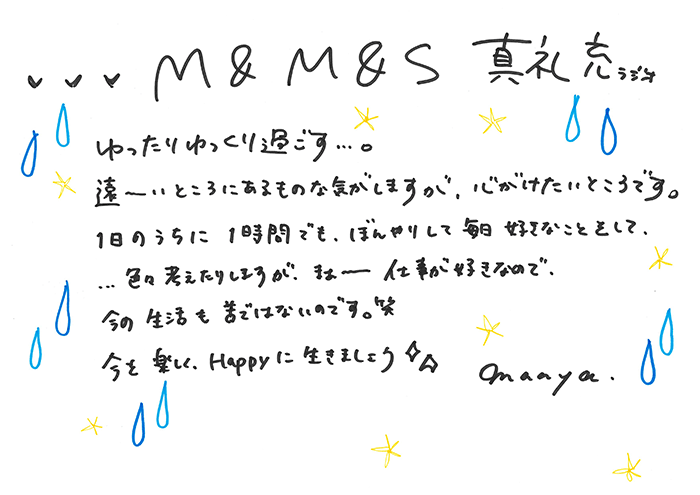 M & M & S 真礼充ラジオ
ゆったりゆっくり過ごす…。
遠〜いところにあるものな気がしますが、心がけたいところです。
1日のうちに 1時間でも、ぼんやりして 毎日 好きなことをして、
…色々 考えたりしますが、まぁ〜 仕事が好きなので、
今の 生活も 苦ではないのです。笑
今を 楽しく、Happyに 生きましょう
maaya.